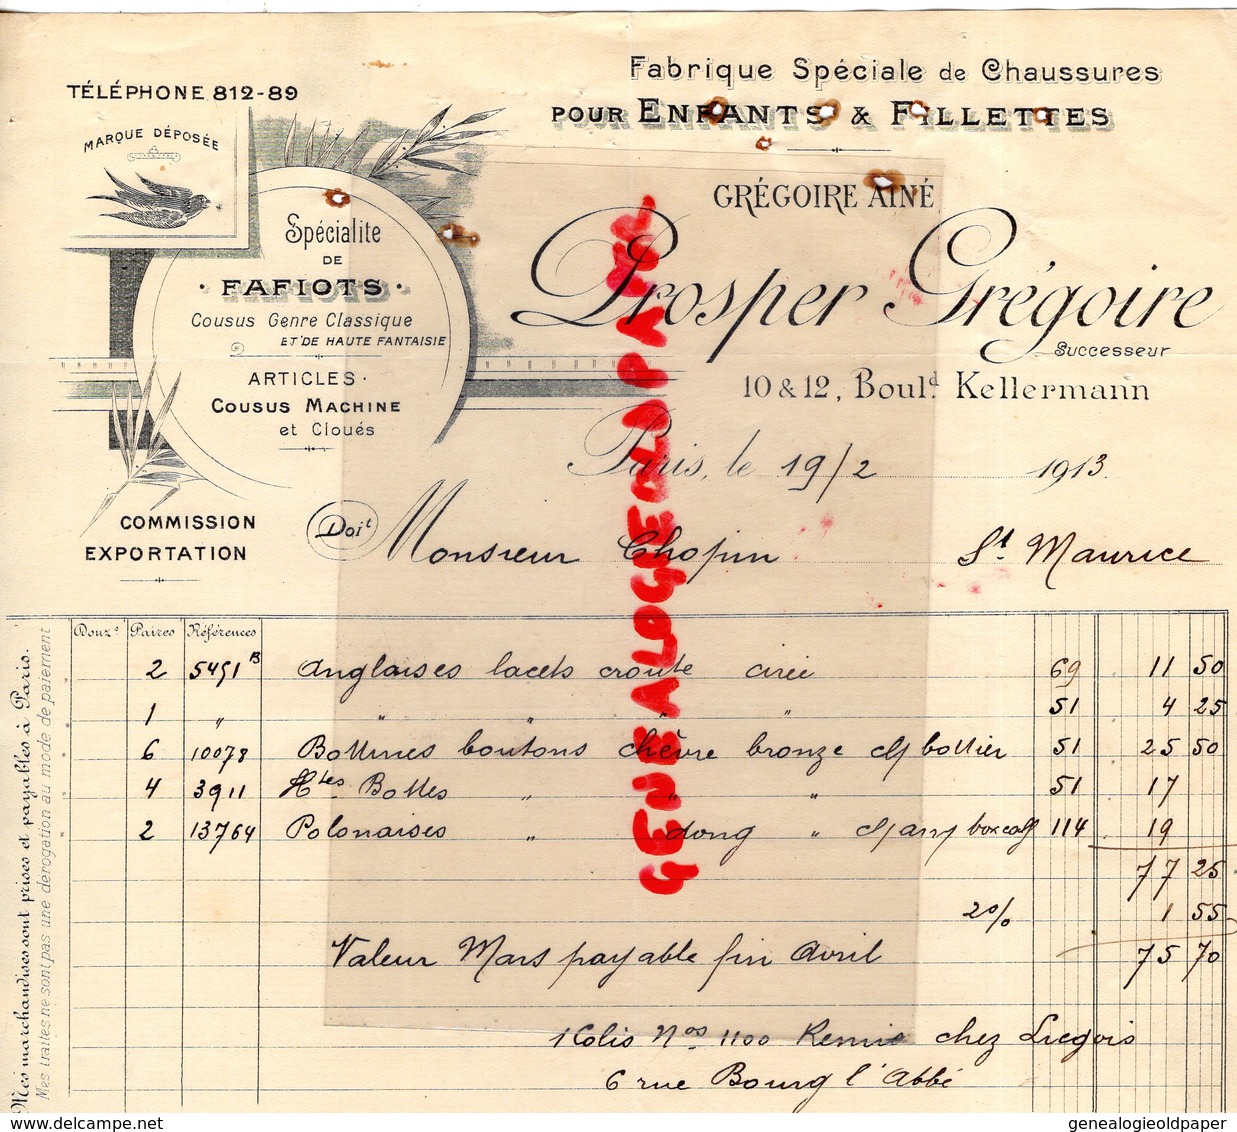 TÉLÉPHONE 812-89
MARQUE DÉPOSÉE
Fabrique Spéciale de Chaussures
POUR ENFANTS & FILLETTES
GRÉGOIRE AINÉ
Prosper Grégoire
Successeur
10 & 12, Boul.d Kellermann
Spécialite
DE
· FAFIOTS ·
Cousus Genre Classique
ET DE HAUTE FANTAISIE
ARTICLES
COUSUS MACHINE
et Cloués
COMMISSION
EXPORTATION
Paris, le 19/2 1913
Doit Monsieur Chopin St Maurice
Douz.s Paires Références
2 5491 B Anglaises lacets croute cirée 69 11 50
1 " " " " " 51 4 25
6 10078 Bottines boutons chèvre bronze bottier 51 25 50
4 3911 Htes Bottes " " " 51 17
2 13764 Polonaises " dong " boxcalf 114 19
77 25
2% 1 55
75 70
Valeur Mars payable fin Avril
1 Colis Nos 1100 Remis chez Liegois
6 rue Bourg l'Abbé
Mes marchandises sont prises et payables à Paris.
Mes traites ne sont pas une dérogation au mode de paiement
GENEALOGIE OLD PAPER
genealogieoldpaper